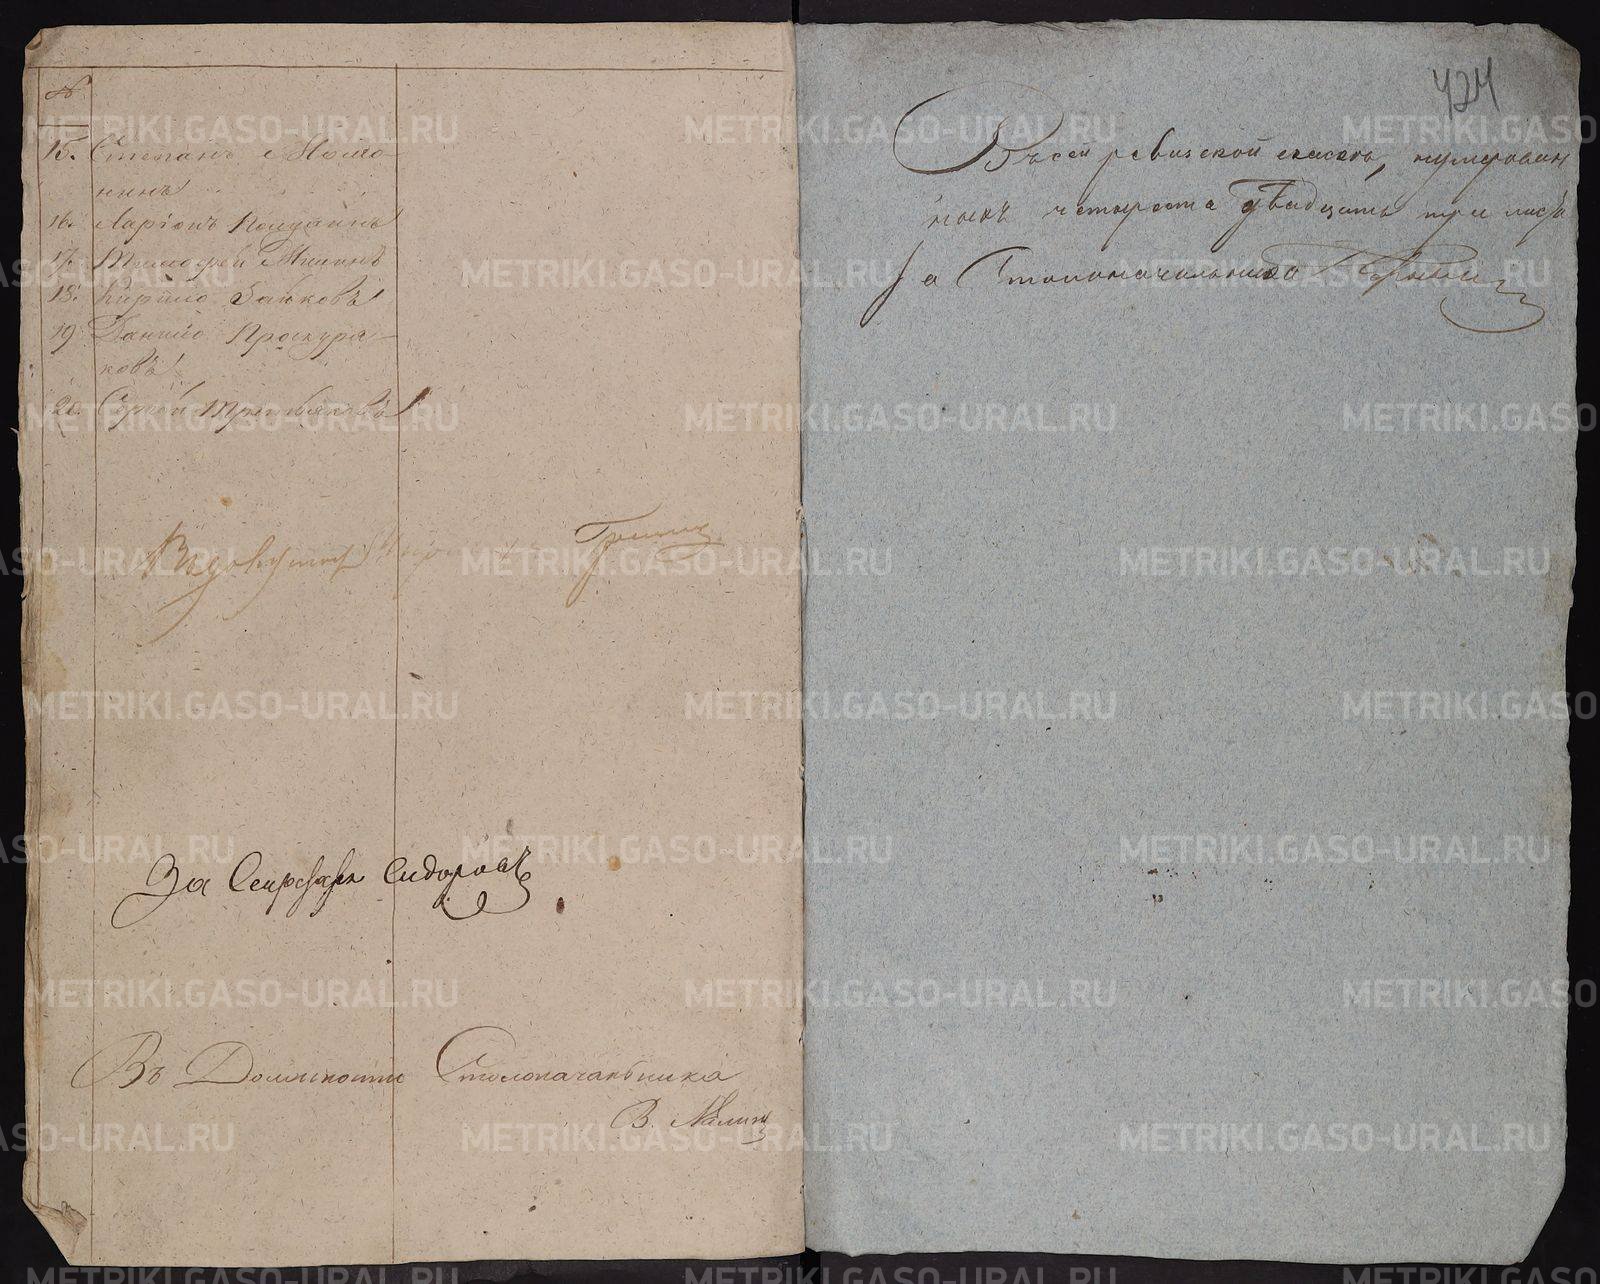 №
15. Степанъ Мошо-
нинъ
16. Ларіонъ
17. Тимофей
18. Кирило Зайковъ
19. Данило Проскуря-
ковъ
20. Сергей Третьяковъ
За Секретаря Сидоровъ
Въ Должности Столоначальника
В.
424
Въ сей ревизской сказкѣ, нумерован
ныхъ четыреста двадцать три листа
За Столоначальника
METRIKI.GASO-URAL.RU